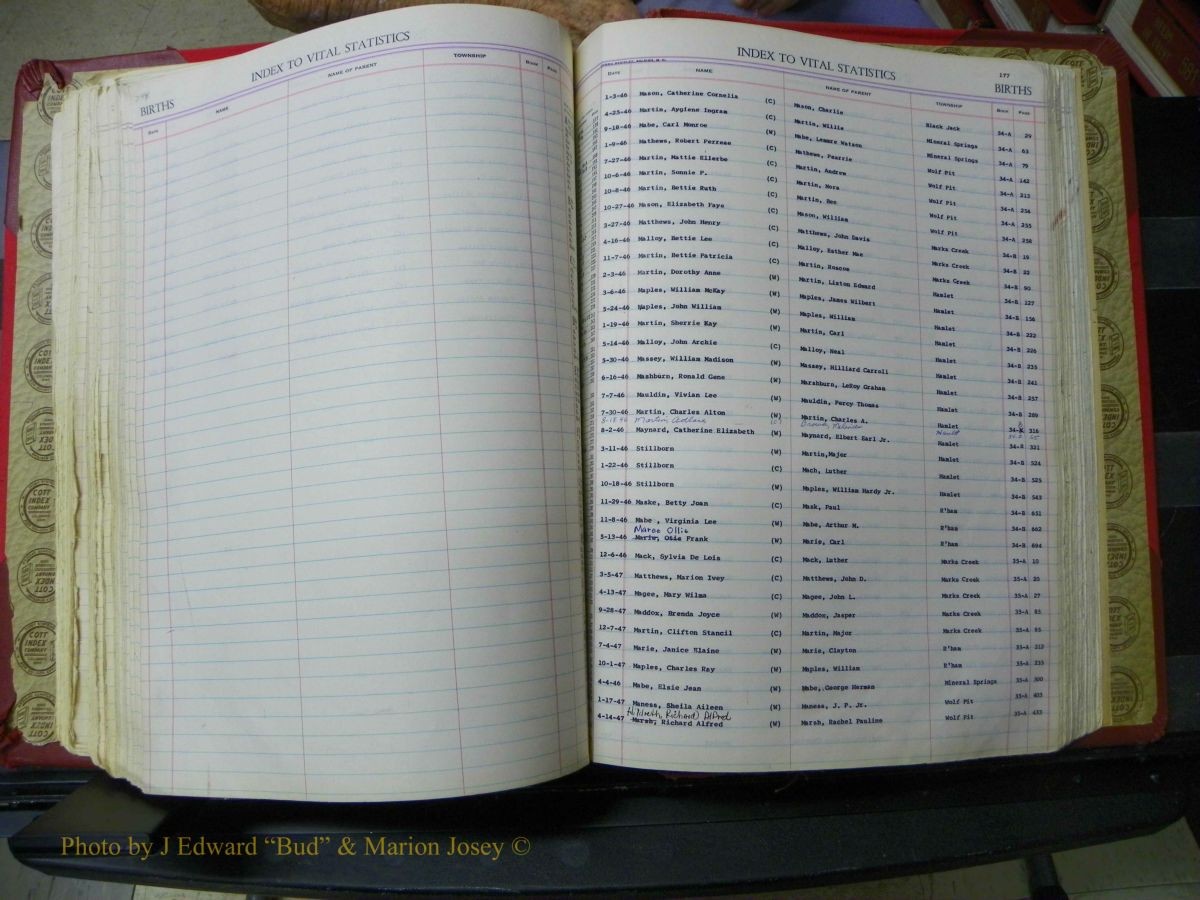 INDEX TO VITAL STATISTICS
BIRTHS
Date NAME NAME OF PARENT TOWNSHIP Book Page
INDEX TO VITAL STATISTICS
177
BIRTHS
Date NAME NAME OF PARENT TOWNSHIP Book Page
1-3-46 Mason, Catherine Cornelia (C) Mason, Charlie Black Jack 34-A 29
4-25-46 Martin, Aygiene Ingram (C) Martin, Willie Mineral Springs 34-A 63
9-18-46 Mabe, Carl Monroe (W) Mabe, Lemore Watson Mineral Springs 34-A 79
1-9-46 Mathews, Robert Perzese (C) Mathews, Pearrie Wolf Pit 34-A 142
7-27-46 Martin, Mattie Ellerbe (C) Martin, Andrew Wolf Pit 34-A 213
10-6-46 Martin, Sonnie P. (C) Martin, Nora Wolf Pit 34-A 234
10-8-46 Martin, Bettie Ruth (C) Martin, Bee Wolf Pit 34-A 235
10-27-46 Mason, Elizabeth Faye (C) Mason, William Wolf Pit 34-A 238
3-27-46 Matthews, John Henry (C) Matthews, John Davis Marks Creek 34-B 19
4-16-46 Malloy, Bettie Lee (C) Malloy, Esther Mae Marks Creek 34-B 32
11-7-46 Martin, Bettie Patricia (C) Martin, Roscoe Marks Creek 34-B 90
2-3-46 Martin, Dorothy Anne (W) Martin, Liston Edward Hamlet 34-B 127
3-6-46 Maples, William McKay (W) Maples, James Wilbert Hamlet 34-B 156
5-24-46 Maples, John William (W) Maples, William Hamlet 34-B 222
1-19-46 Martin, Sherrie Kay (W) Martin, Carl Hamlet 34-B 226
5-14-46 Malloy, John Archie (C) Malloy, Neal Hamlet 34-B 235
5-30-46 Massey, William Madison (W) Massey, Hilliard Carroll Hamlet 34-B 241
6-16-46 Mashburn, Ronald Gene (W) Marshburn, LeRoy Graham Hamlet 34-B 257
7-7-46 Mauldin, Vivian Lee (W) Mauldin, Percy Thomas Hamlet 34-B 289
7-30-46 Martin, Charles Alton (W) Martin, Charles A. Hamlet 34- 316
8-18-46 Martin (C)
8-2-46 Maynard, Catherine Elizabeth (W) Maynard, Elbert Earl Jr. Hamlet 34-B 321
3-11-46 Stillborn (W) Martin,Major Hamlet 34-B 524
1-22-46 Stillborn (C) Mach, Luther Hamlet 34-B 525
10-18-46 Stillborn (W) Maples, William Hardy Jr. Hamlet 34-B 543
11-29-46 Maske, Betty Joan (C) Mask, Paul R'ham 34-B 651
11-8-46 Mabe , Virginia Lee (W) Mabe, Arthur M. R'ham 34-B 662
Maree Ollie
5-13-46 Frank (W) Marie, Carl R'ham 34-B 694
12-6-46 Mack, Sylvia De Lois (C) Mack, Luther Marks Creek 35-A 10
3-5-47 Matthews, Marion Ivey (C) Matthews, John D. Marks Creek 35-A 20
4-13-47 Magee, Mary Wilma (C) Magee, John L. Marks Creek 35-A 27
9-28-47 Maddox, Brenda Joyce (W) Maddox, Jasper Marks Creek 35-A 85
12-7-47 Martin, Clifton Stancil (C) Martin, Major Marks Creek 35-A 95
7-4-47 Marie, Janice Elaine (W) Marie, Clayton R'ham 35-A 212
10-1-47 Maples, Charles Ray (W) Maples, William R'ham 35-A 235
4-4-46 Mabe, Elsie Jean (W) Mabe, George Herman Mineral Springs 35-A 300
1-17-47 Maness, Sheila Aileen (W) Maness, J. P. Jr. Wolf Pit 35-A 403
Hildreth, Richard Alfred
4-14-47 Marsh, Richard Alfred (W) Marsh, Rachel Pauline Wolf Pit 35-A 433
COTT INDEX COMPANY
Photo by J Edward “Bud” & Marion Josey ©